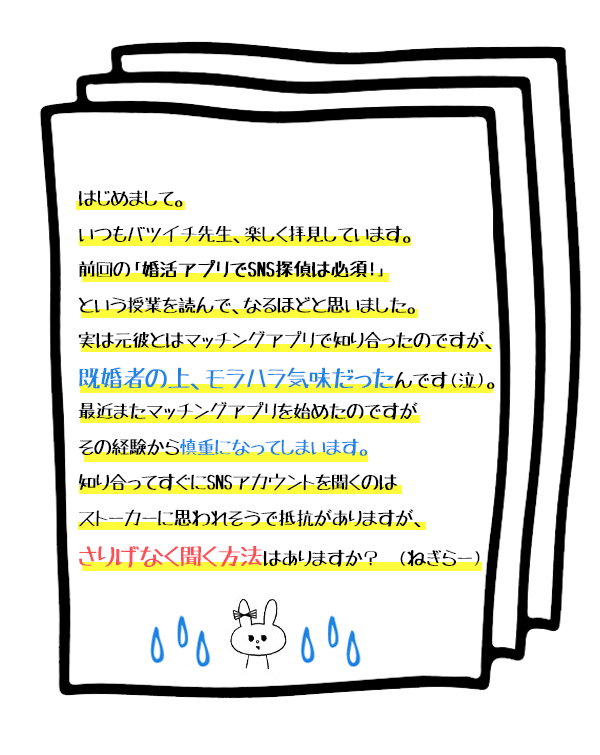 はじめまして。
いつもバツイチ先生、楽しく拝見しています。
前回の「婚活アプリでSNS探偵は必須！」
という授業を読んで、なるほどと思いました。
実は元彼とはマッチングアプリで知り合ったのですが、
既婚者の上、モラハラ気味だったんです（泣）。
最近またマッチングアプリを始めたのですが
その経験から慎重になってしまいます。
知り合ってすぐにSNSアカウントを聞くのは
ストーカーに思われそうで抵抗がありますが、
さりげなく聞く方法はありますか？　（ねぎらー）